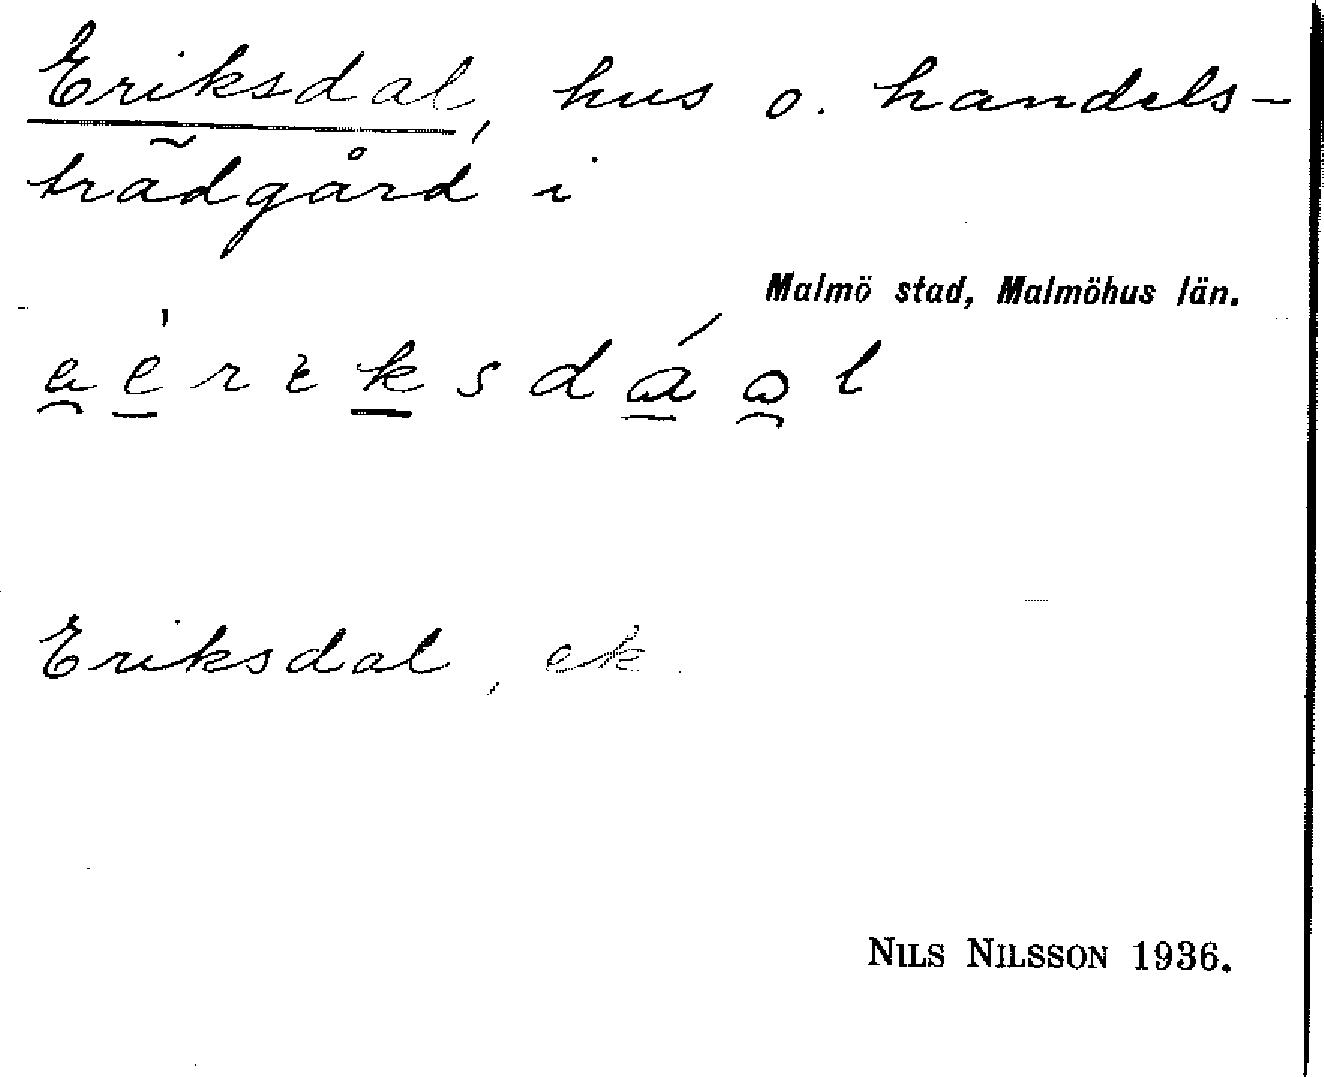 Eriksdal, hus o. handels-
trädgård i
Malmö stad, Malmöhus län.
Eriksdal, ek.
NILS NILSSON 1936.